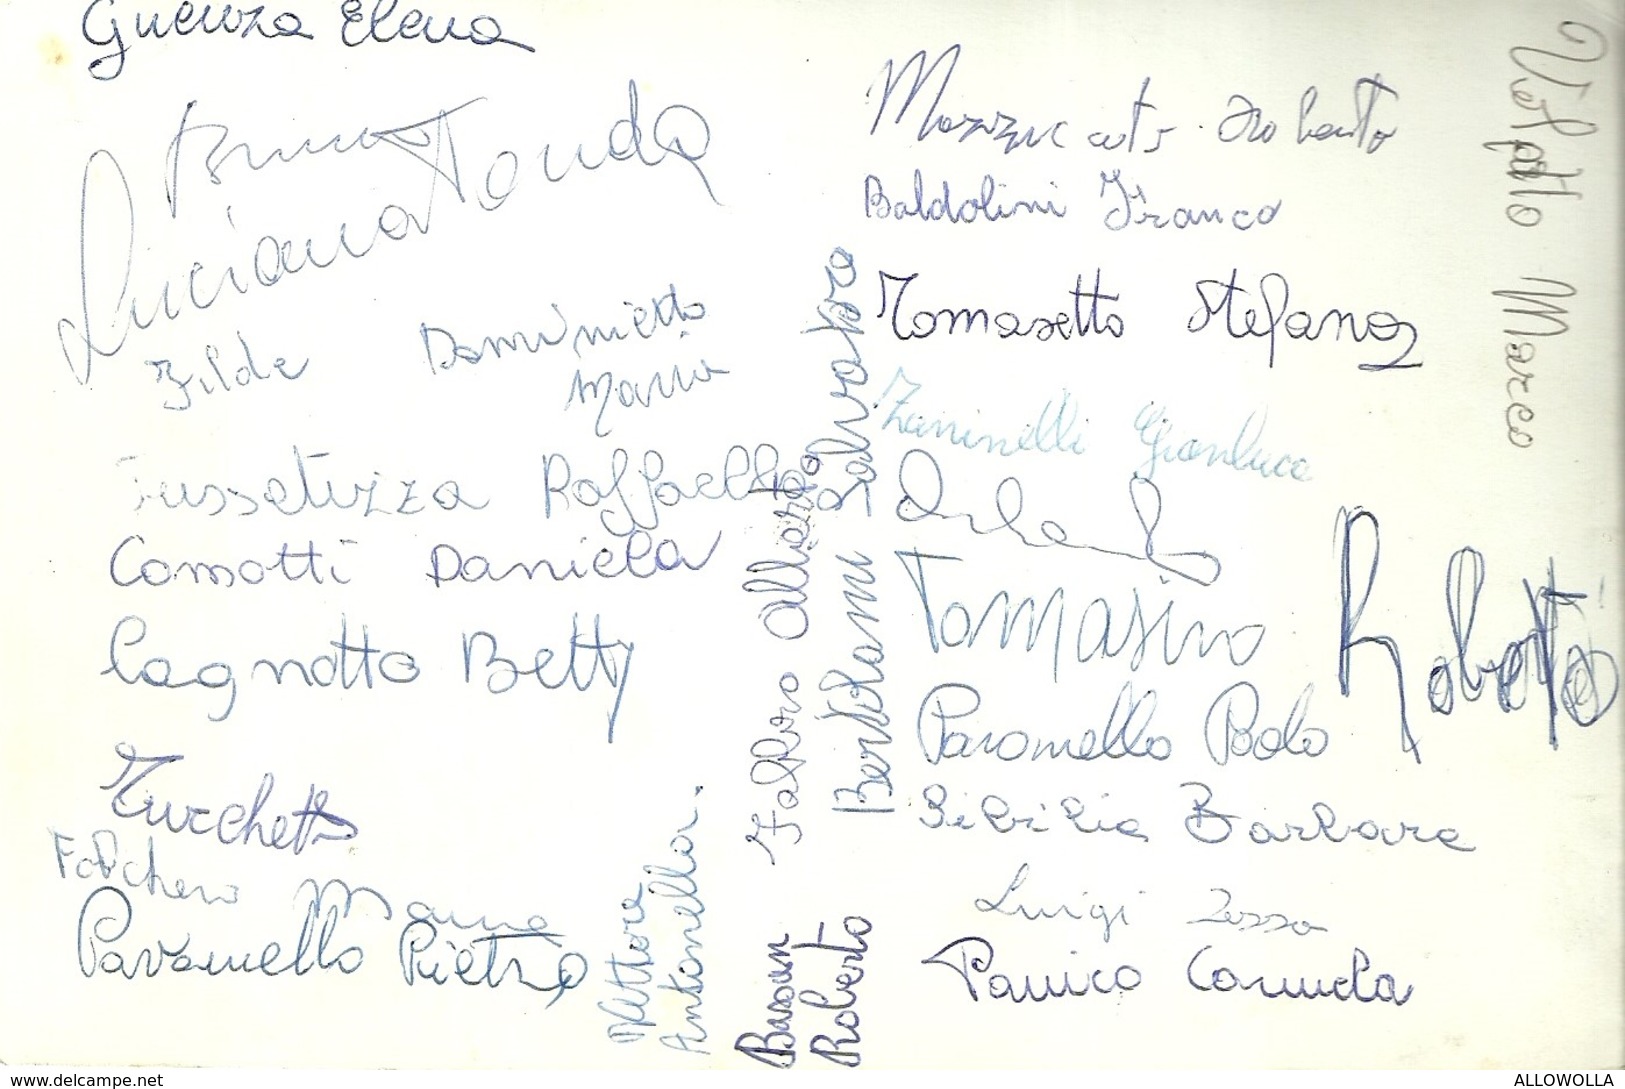 Guenza Elena
Bruno
Luciana Tonda
Gilda
Dominietto
Maria
Fussetizza Raffaella
Comotti Daniela
Cagnotto Betty
Turchetto
Folchero
Pavanello Pietro
Antonella
Fabbro Alberto
Basan
Roberto
Bertolami Salvatore
Mazzucato Roberto
Baldolini Franco
Tomasetto Stefano
Zaninelli Gianluca
Orlando
Tomasino
Paromello Paolo
Sibilia Barbara
Luigi Zossa
Panico Carmela
Roberto
Volpatto Marco
www.delcampe.net
ALLOWOLLA